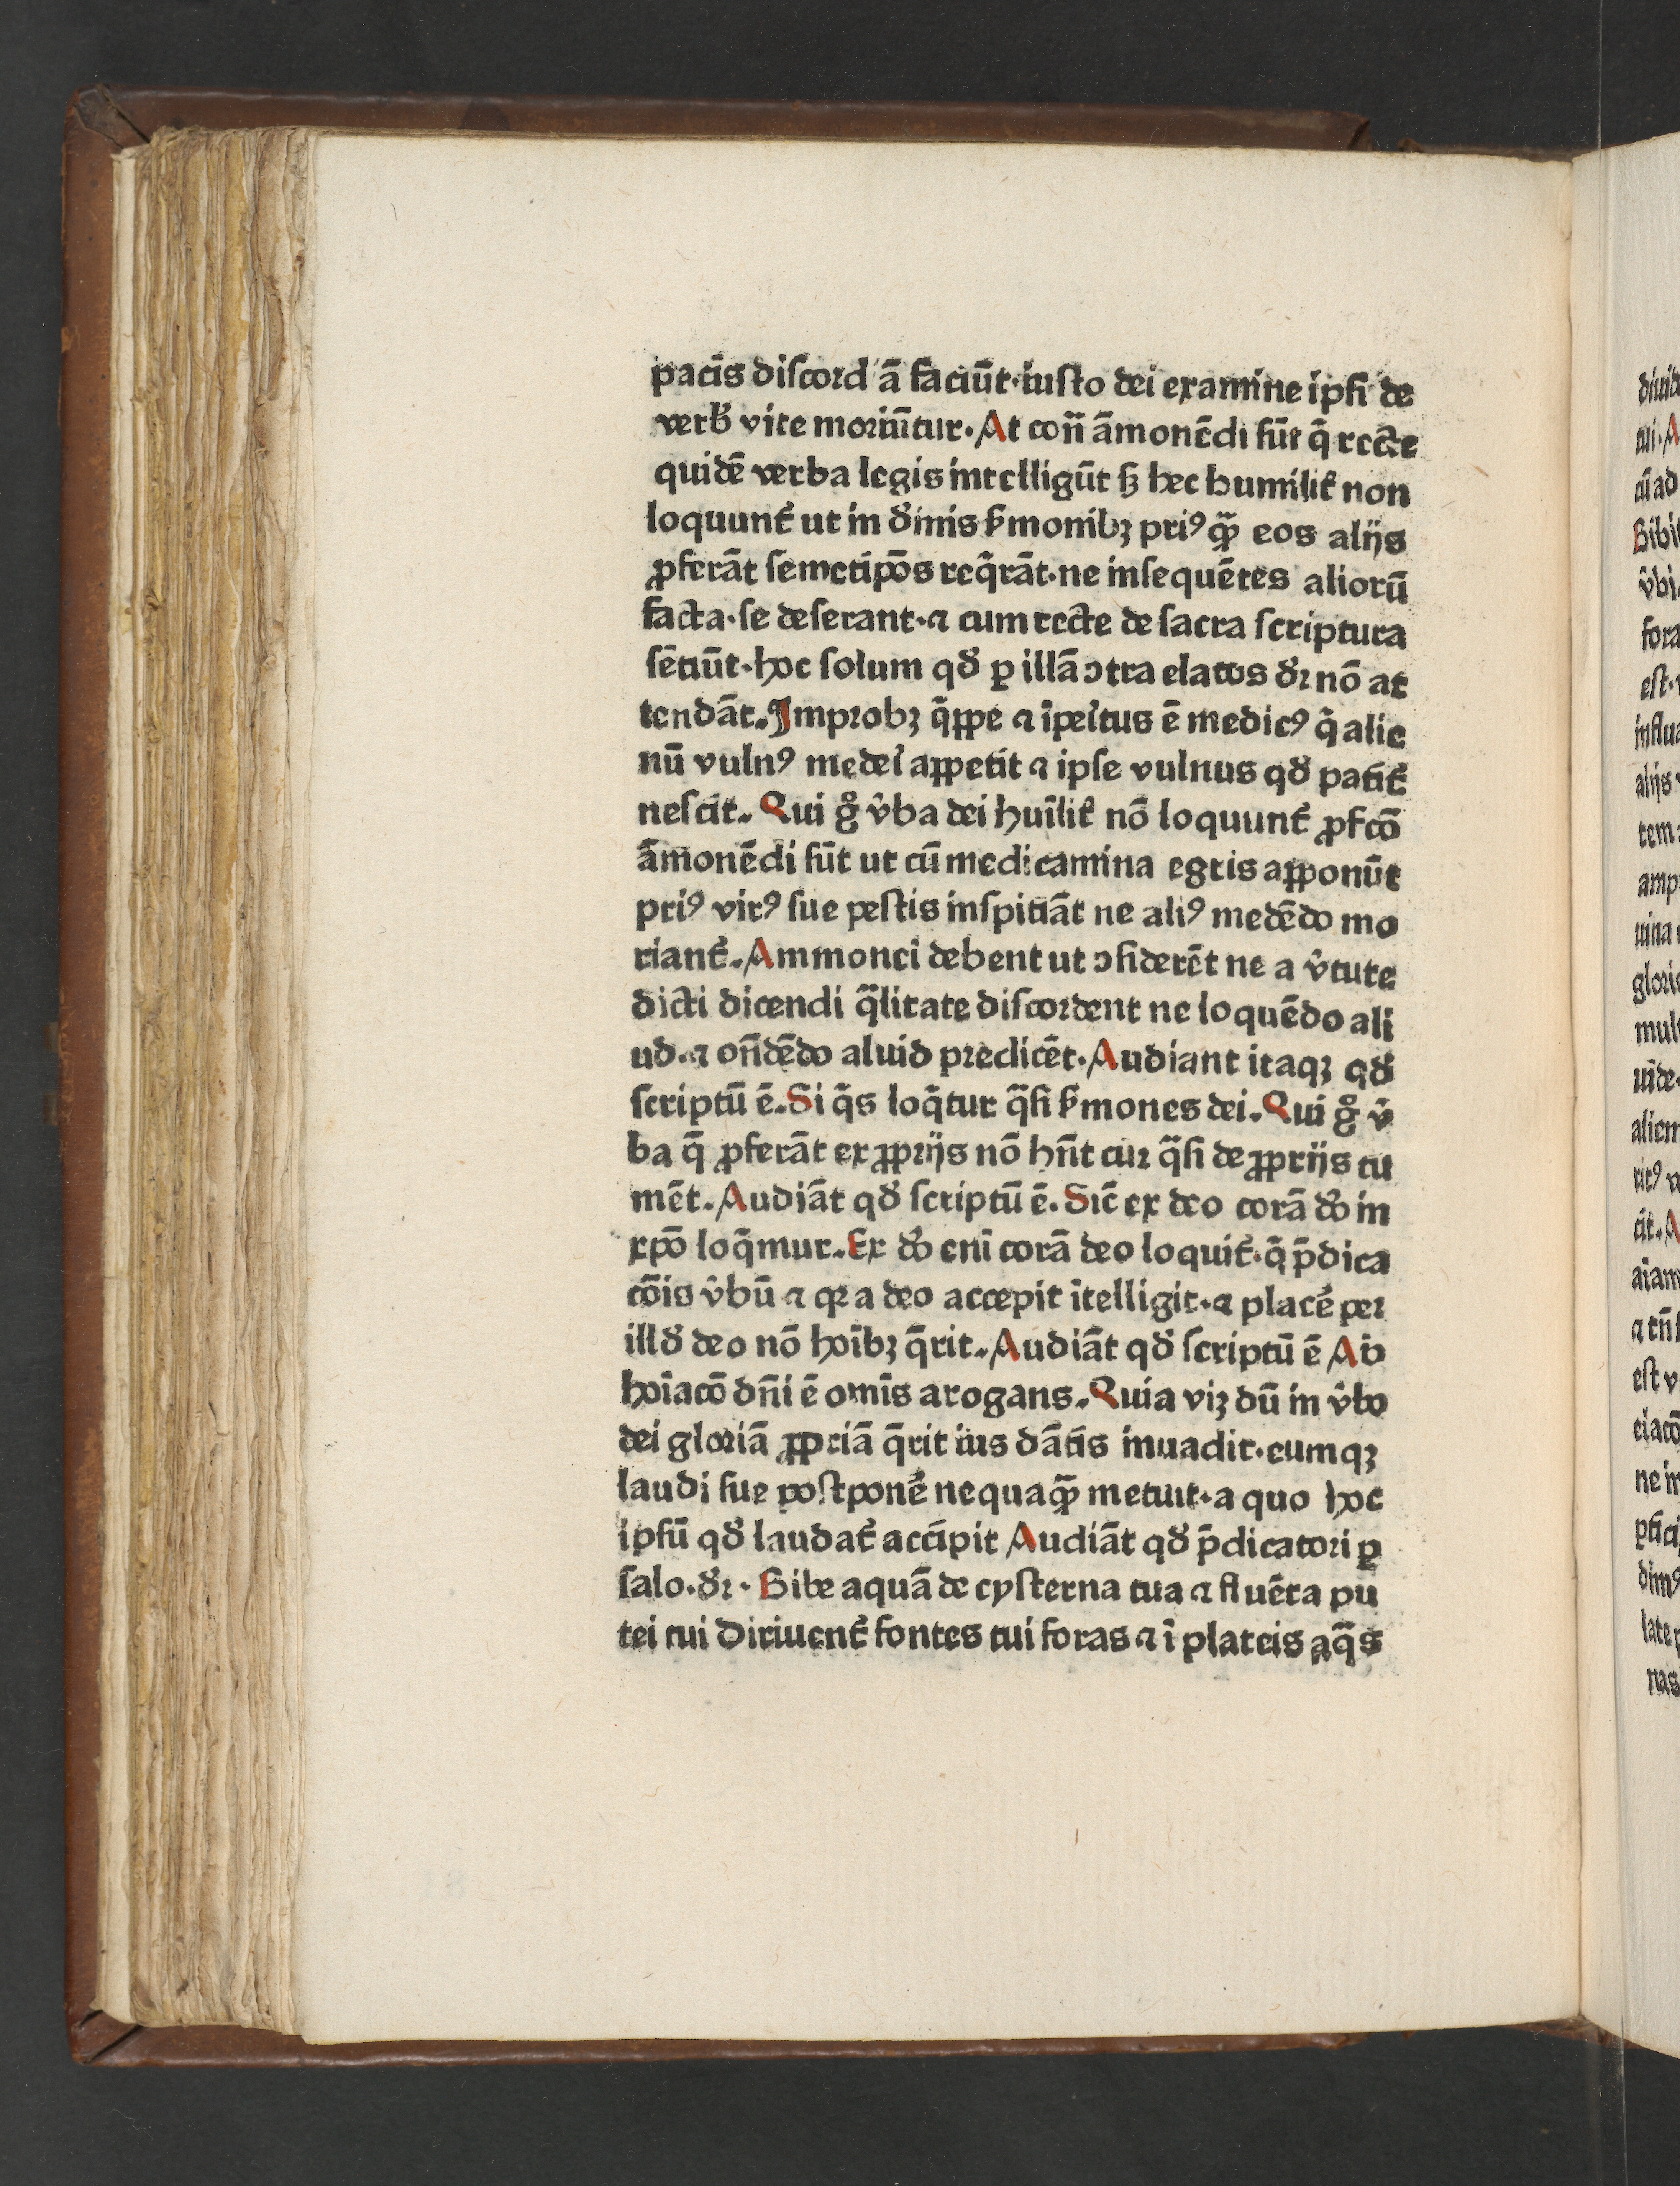 pacĩs diſcord'ã faciũt·iuſto dei examine ipſi de
verb̕ vite moriũtur·At con̄ ãmonẽdi ſũt q̃ recte
quidẽ verba legis intelligũt ſꝫ hec humilit̕ non
loquunt̕ ut in d̕inis ẜmonibꝫ priꝰ qꝫ̃ eos alijs
ꝓferãt ſemetip̃os req̃rãt·ne inſequẽtes aliorũ
facta·ſe deſerant·⁊ cum recte de ſacra ſcriptura
ſẽtiũt·hoc ſolum qđ ꝑ illã ↄtra elatos đꝛ nõ at
tendãt.Improbꝫ q̃ppe ⁊ ĩpe̕itus ẽ medicꝰ q̃ alie
nũ vulnꝰ mede̕i appetit ⁊ ipſe vulnus qđ patit̕
neſcit. Qui gͦ v̕ba dei huĩlit̕ nõ loquunt̕ ꝓfcõ
ãmonẽdi ſũt ut cũ medicamina egris apponũt
priꝰ virꝰ ſue peſtis inſpitiãt ne aliꝰ medẽdo mo
riant̕.Ammonei debent ut ↄſiderẽt ne a v̕tute
dicti dicendi q̃litate diſcordent ne loquẽdo ali
ud·⁊ on̄dẽdo aluid predicẽt·Audiant itaqꝫ qđ
ſcriptũ ẽ.Si q̃s loq̃tur q̃ſi ẜmones dei.Qui gͦ v̕
ba q̃ ꝓferãt ex ꝓprijs nõ hn̄t cuꝛ q̃ſi de ꝓprijs tu
mẽt.Audiãt qđ ſcriptũ ẽ.Sic̃ ex deo corã dõ in
xp̃o loq̃mur.Ex dõ enĩ corã deo loquit̕·q̃ p̃dica
cõis v̕bũ ⁊ qꝛ a deo accepit ĩtelligit·⁊ place̕ peꝛ
illđ deo nõ hoĩbꝫ q̃rit.Audiãt qđ ſcriptũ ẽ Ab
hoĩacõ dn̄i ẽ omĩs arogans.Quia viꝫ dũ in v̕bo
dei gloriã ꝓpriã q̃rit ius dãtĩs inuadit·eumqꝫ
laudi ſue poſtpone̕ nequaqꝫ̃ metuit·a quo hoc
ipſũ qđ laudat̕ accipit Audiãt qđ p̃dicatori ꝑ
ſalo·đꝛ·Bibe aquã de cyſterna tua ⁊ fluẽta pu
tei tui Diriuent̕ fontes tui foras ⁊ ĩ plateis aq̃s